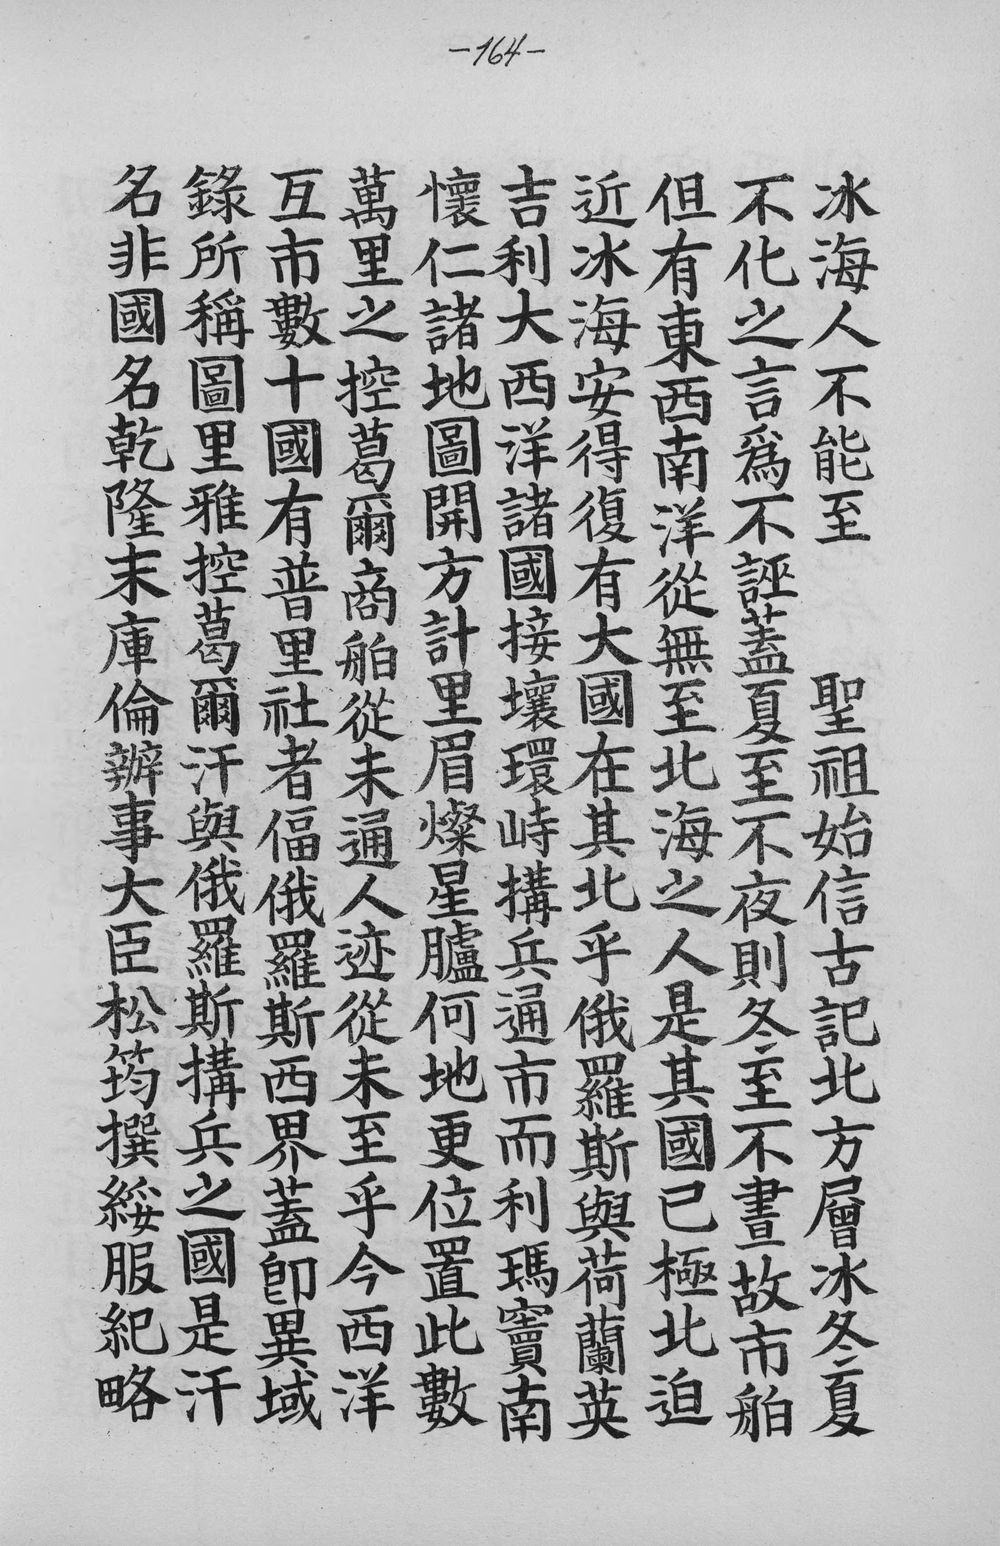 -164-
冰海人不能至　聖祖始信古記北方層冰冬夏
不化之言爲不誣蓋夏至不夜則冬至不晝故市舶
但有東西南洋從無至北海之人是其國已極北迫
近冰海安得復有大國在其北乎俄羅斯與荷蘭英
吉利大西洋諸國接壤環峙搆兵通市而利瑪竇南
懷仁諸地圖開方計里眉燦星臚何地更位置此數
萬里之控葛爾商舶從未通人迹從未至乎今西洋
互市數十國有普里社者偪俄羅斯西界蓋卽異域
錄所稱圖里雅控葛爾汗與俄羅斯搆兵之國是汗
名非國名乾隆末庫倫辦事大臣松筠撰綏服紀略